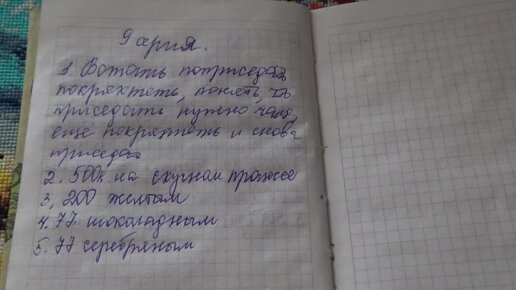 9 серия.
1. Встать поприседать
покряхтеть, понять, что
приседать нужно чаще,
ещё покряхтеть и снова
приседать
2. 500к на скучном процессе
3, 200 желтым
4. 77 шоколадным
5. 77 серебряным